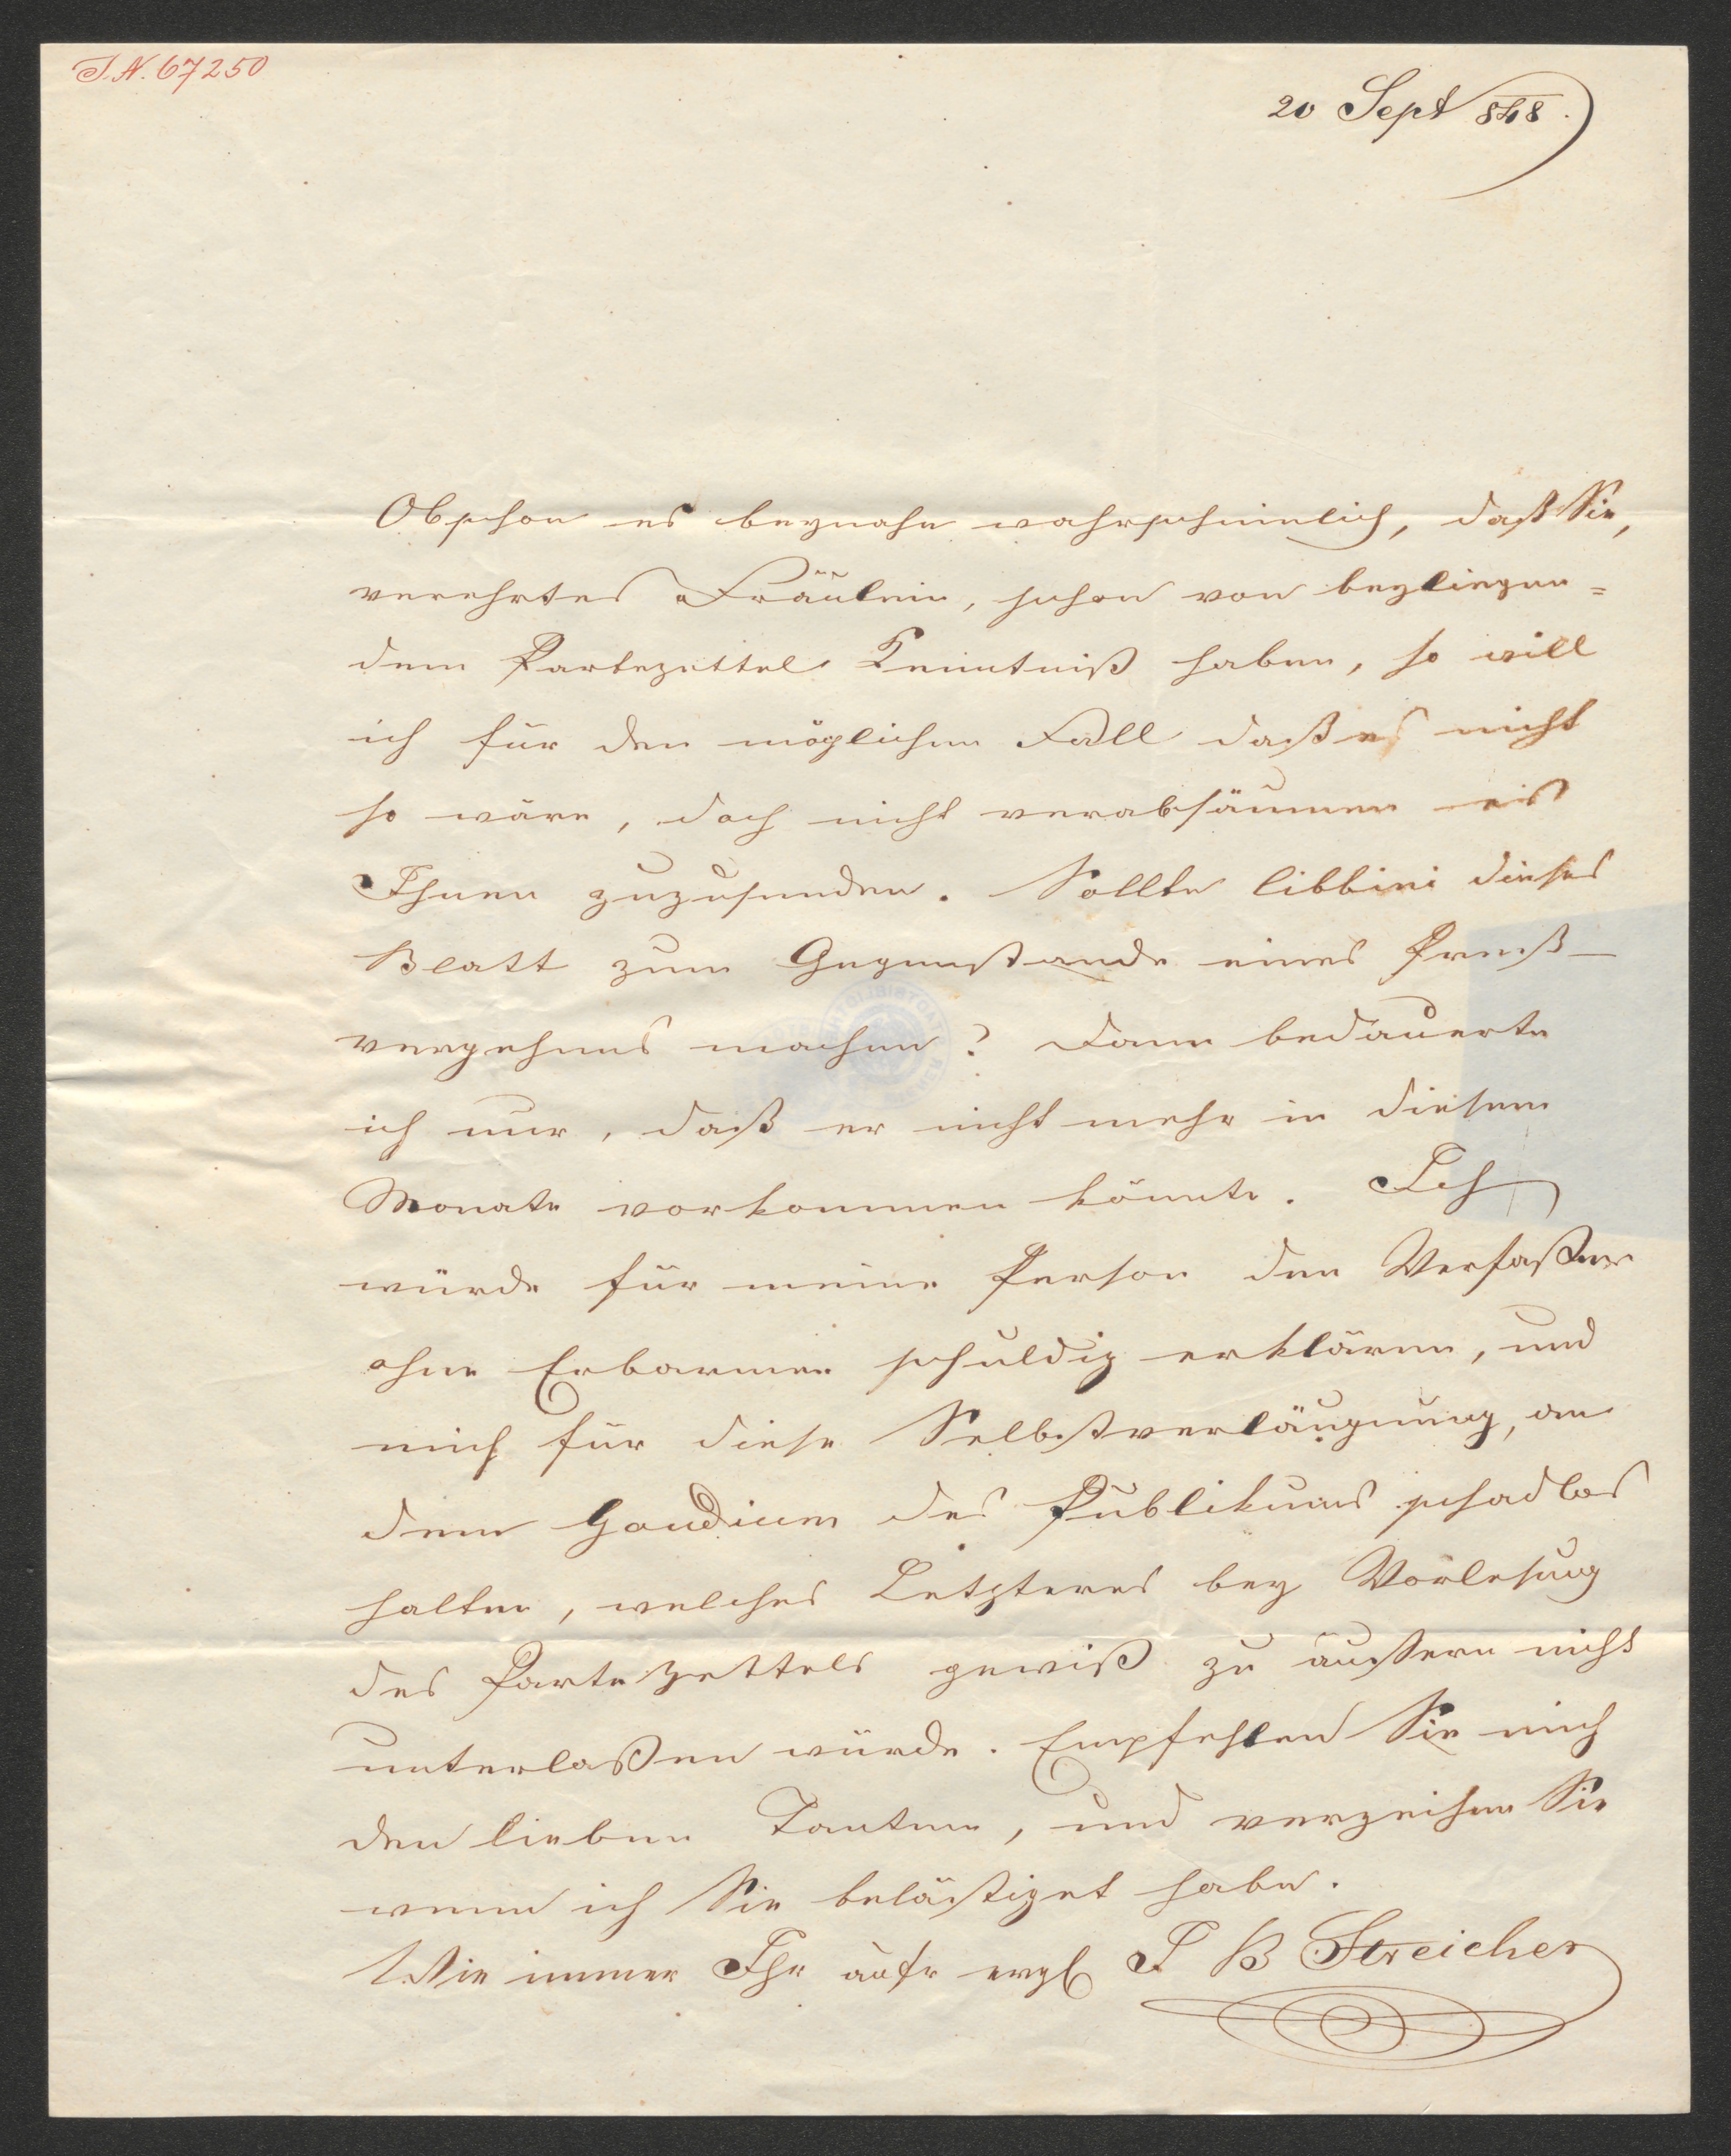 J.N. 67250
20 Sept 848.
Obschon es beynahe wahrscheinlich, daß Sie,
verehrtes Fräulein, schon von beyliegen=
dem Partezettel Kenntniß haben, so will
ich für den möglichen Fall daß es nicht
so wäre, doch nicht verabsäumen es
Ihnen zuzusenden. Sollte libbini dieses
Blatt zum Gegenstande eines Preß-
vergehens machen? Dann bedauerte
ich nur, daß er nicht mehr in diesem
Monate vorkommen könnte. Ich
würde für meine Person den Verfaßer
ohne Erbarmen schuldig erklären, und
mich für diese Selbstverläugnung, an
dem Gaudium des Publikums schadlos
halten, welches Letzteres bey Vorlesung
des Partezettels gewiß zu äußern nicht
unterlaßen würde. Empfehlen Sie mich
den lieben Tanten, und verzeihen Sie
wenn ich Sie belästiget habe.
Wie immer Ihr aufr ergb J B Streicher